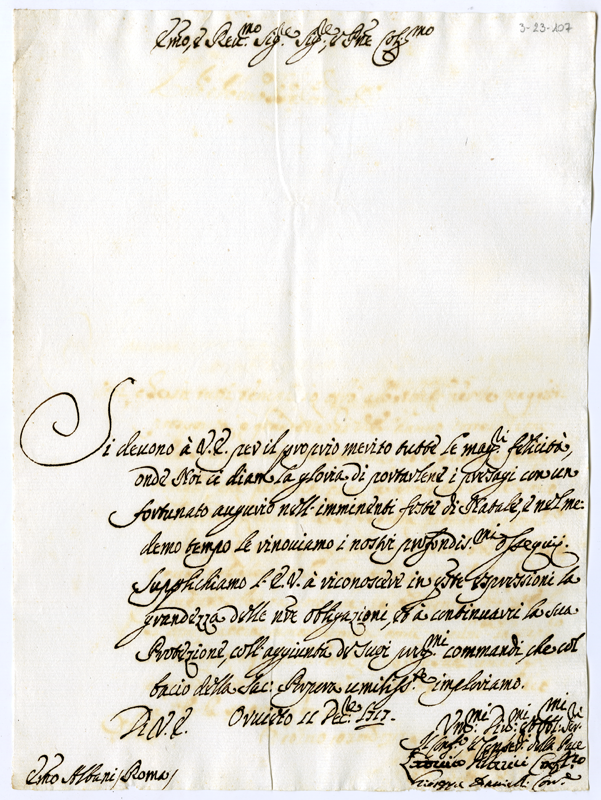 3-23-107
Emo, e Reu.mo Sig.re Sig.re, e Pne Col.mo
Si deuono à V.E. per il proprio merito tutte le mag.ri felicità,
onde Noi ci diam la gloria di portarlene i presagi con un
fortunato augurio nell'imminenti feste di Natale, e nel me-
demo tempo le rinouiamo i nostri profondis.mi ossequij.
Supplichiamo l'E.V. à riconoscere in q̃ste espressioni la
grandezza delle nr̃e obligazioni, et à continuarci la sua
Protezione, coll'aggiunta de Suoi preg.mi commandi, che col
bacio della Sac: Porpora umilisse.te imploriamo.
Di V.E. Oruieto 11 Dec.bre 1717.
Vmi.mi Diu.mi Obbl.mi Ser.ri
Il Conf.re e Conserv.ri della Pace
Emo Albani /Roma/